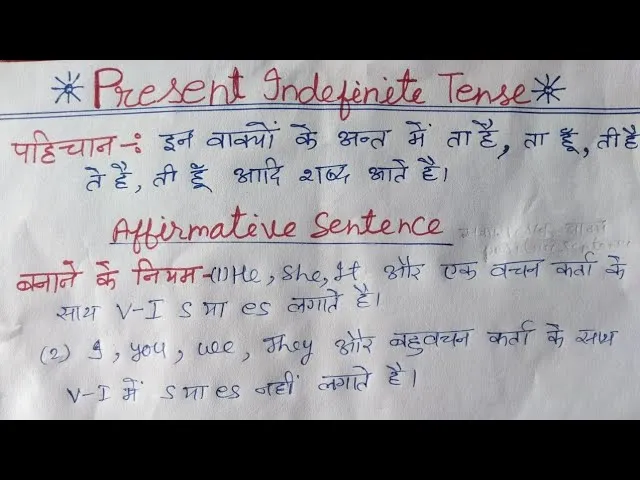 Present Indefinite Tense
पहिचान-: इन वाक्यों के अन्त में ता है, ता हूँ, ती है
ते है, ती हूँ आदि शब्द आते है।
Affirmative Sentence
बनाने के नियम-(1)He, She, It और एक वचन कर्ता के
साथ V-I S या es लगाते है।
(2) I, you, we, They और बहुवचन कर्ता के साथ
V-I में S या es नहीं लगाते है।